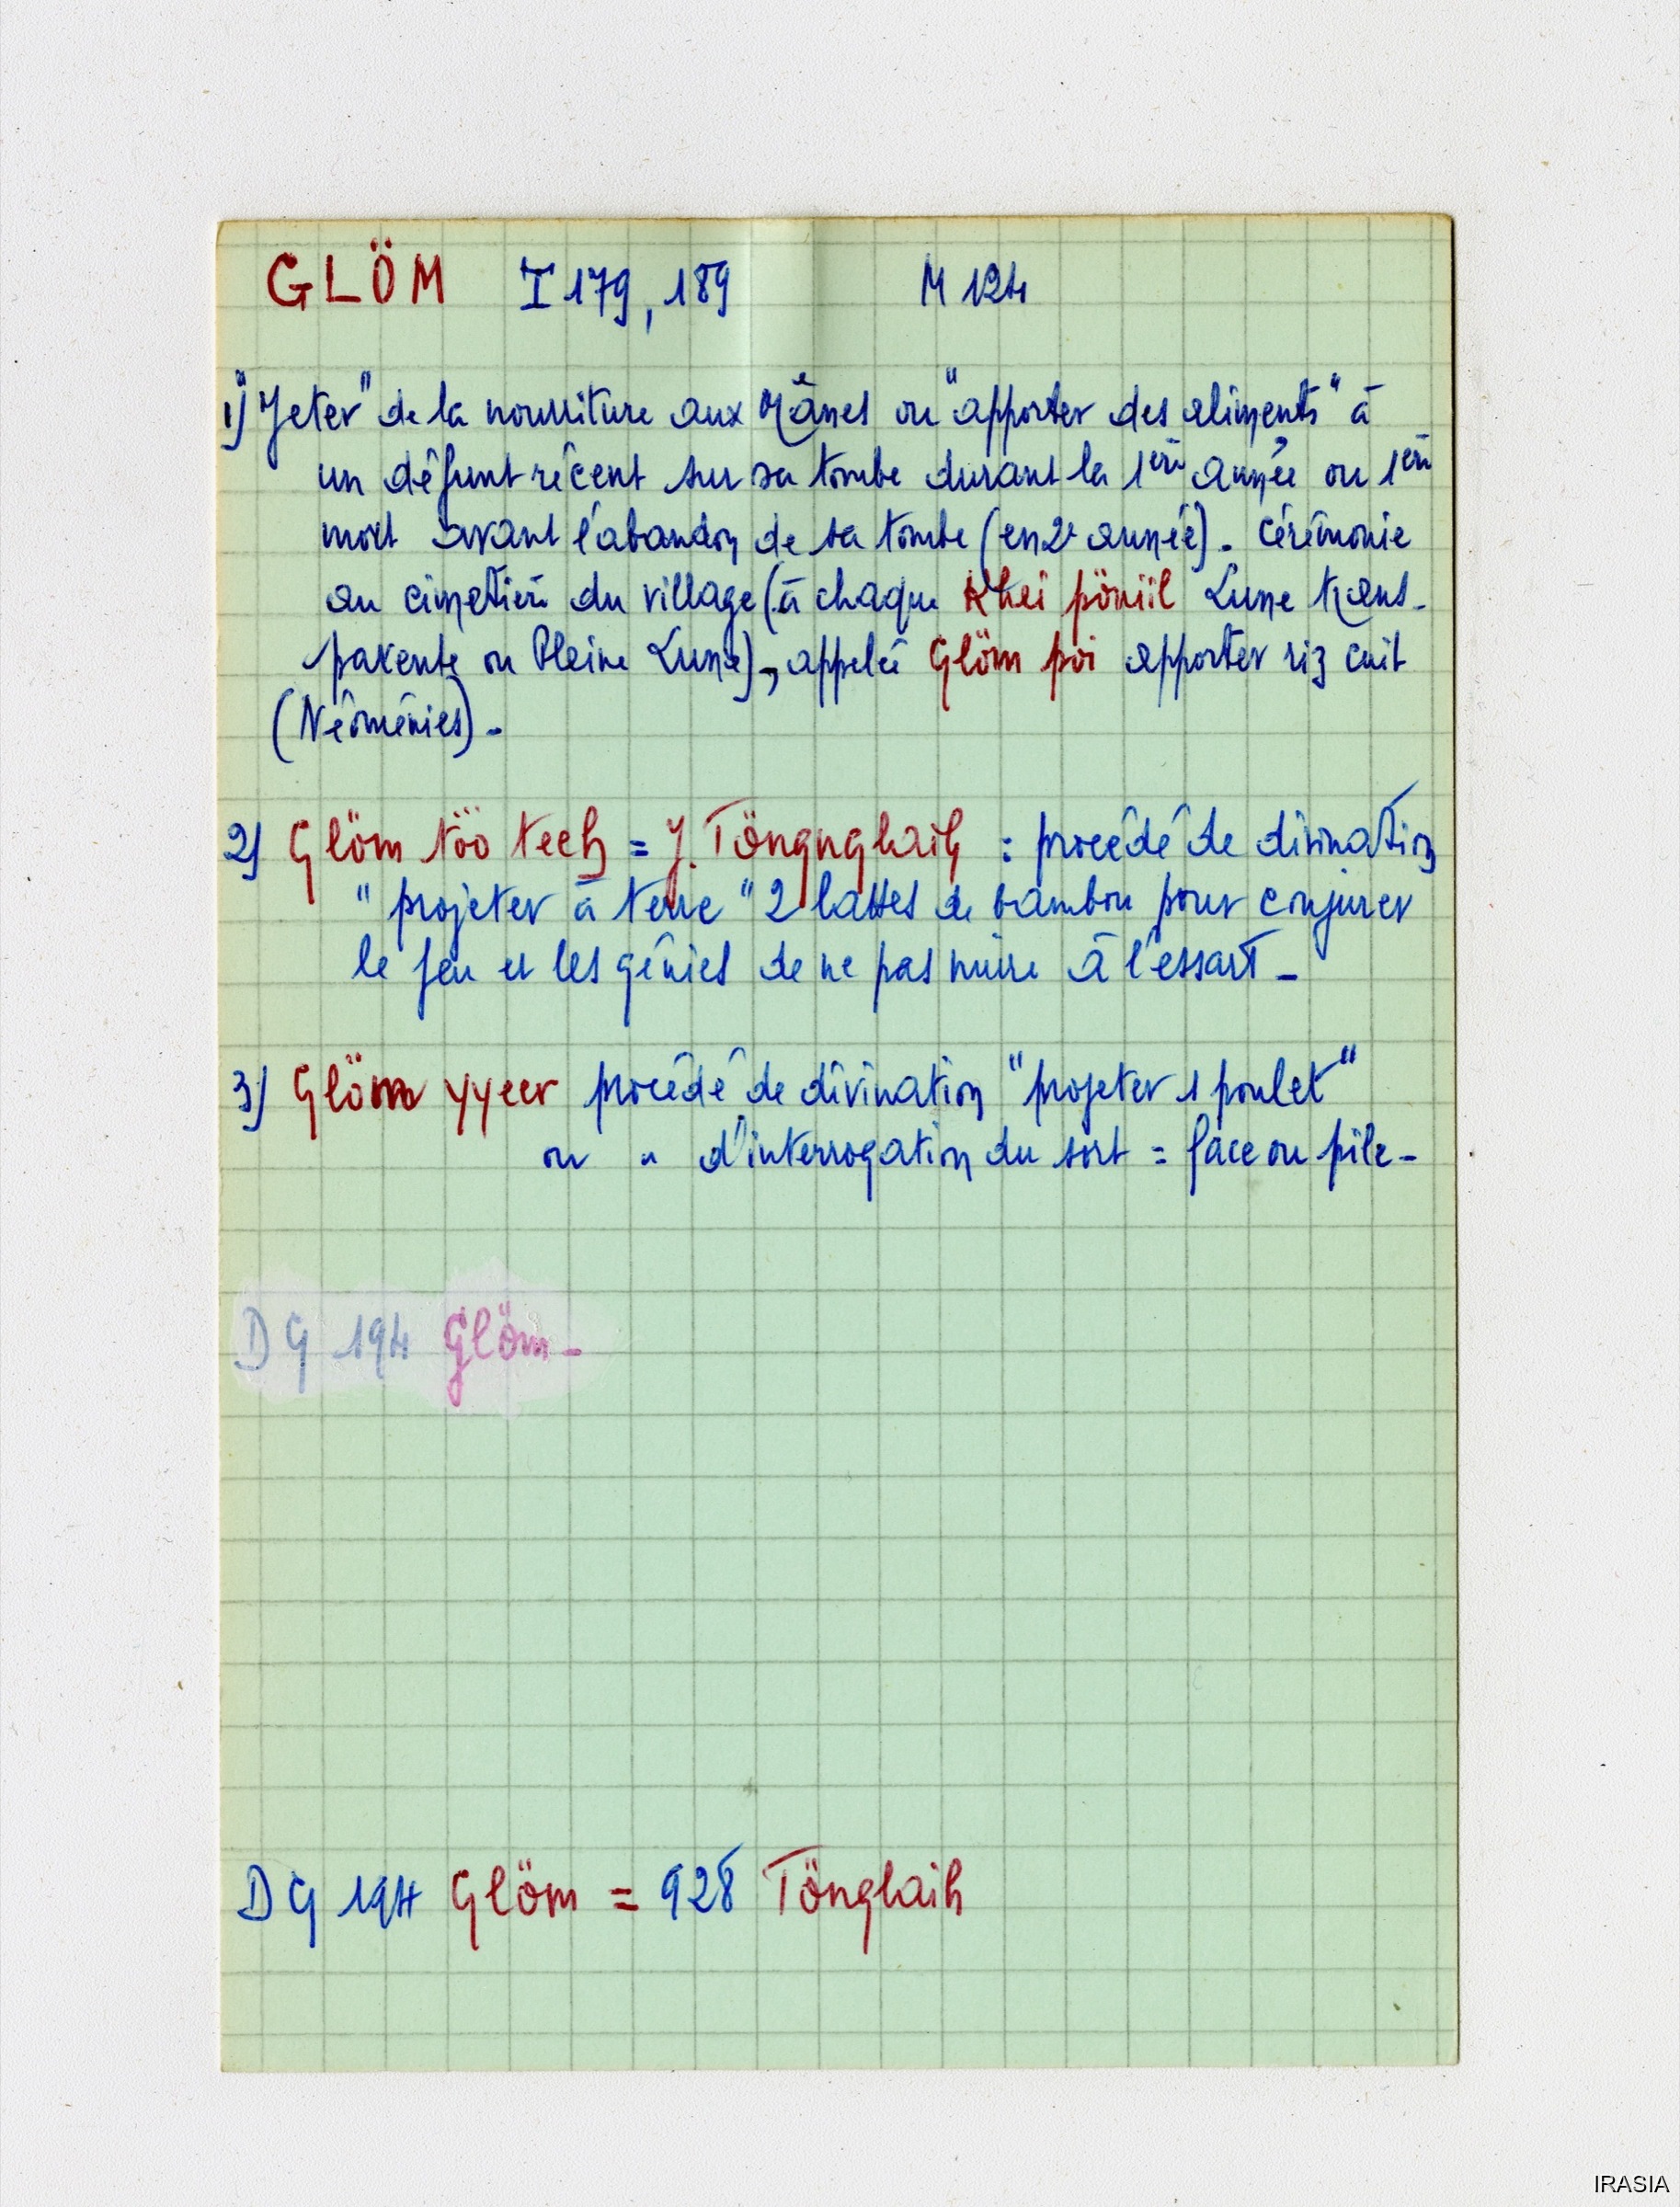 GLÖM I 179, 189 M 124
1) "Jeter" de la nourriture aux Mânes ou "apporter des aliments" à
un défunt récent sur sa tombe durant la 1ère année ou 1ère
mort avant l'abandon de sa tombe (en 2e année). Cérémonie
au cimetière du village (à chaque Khei pöniil Lune trans-
parente ou Pleine Lune), appelée Glöm poi apporter riz cuit
(Néoménies).
2) Glöm töo teeh = J. Töngnglaih : procédé de divination
"projeter à terre" 2 lattes de bambou pour conjurer
le feu et les génies de ne pas nuire à l'essart_
3) Glöm yyeer procédé de divination "projeter 1 poulet"
ou " d'interrogation du sort = face ou pile_
DG 194 Glöm_
DG 194 Glöm = 928 Tönglaih
IRASIA